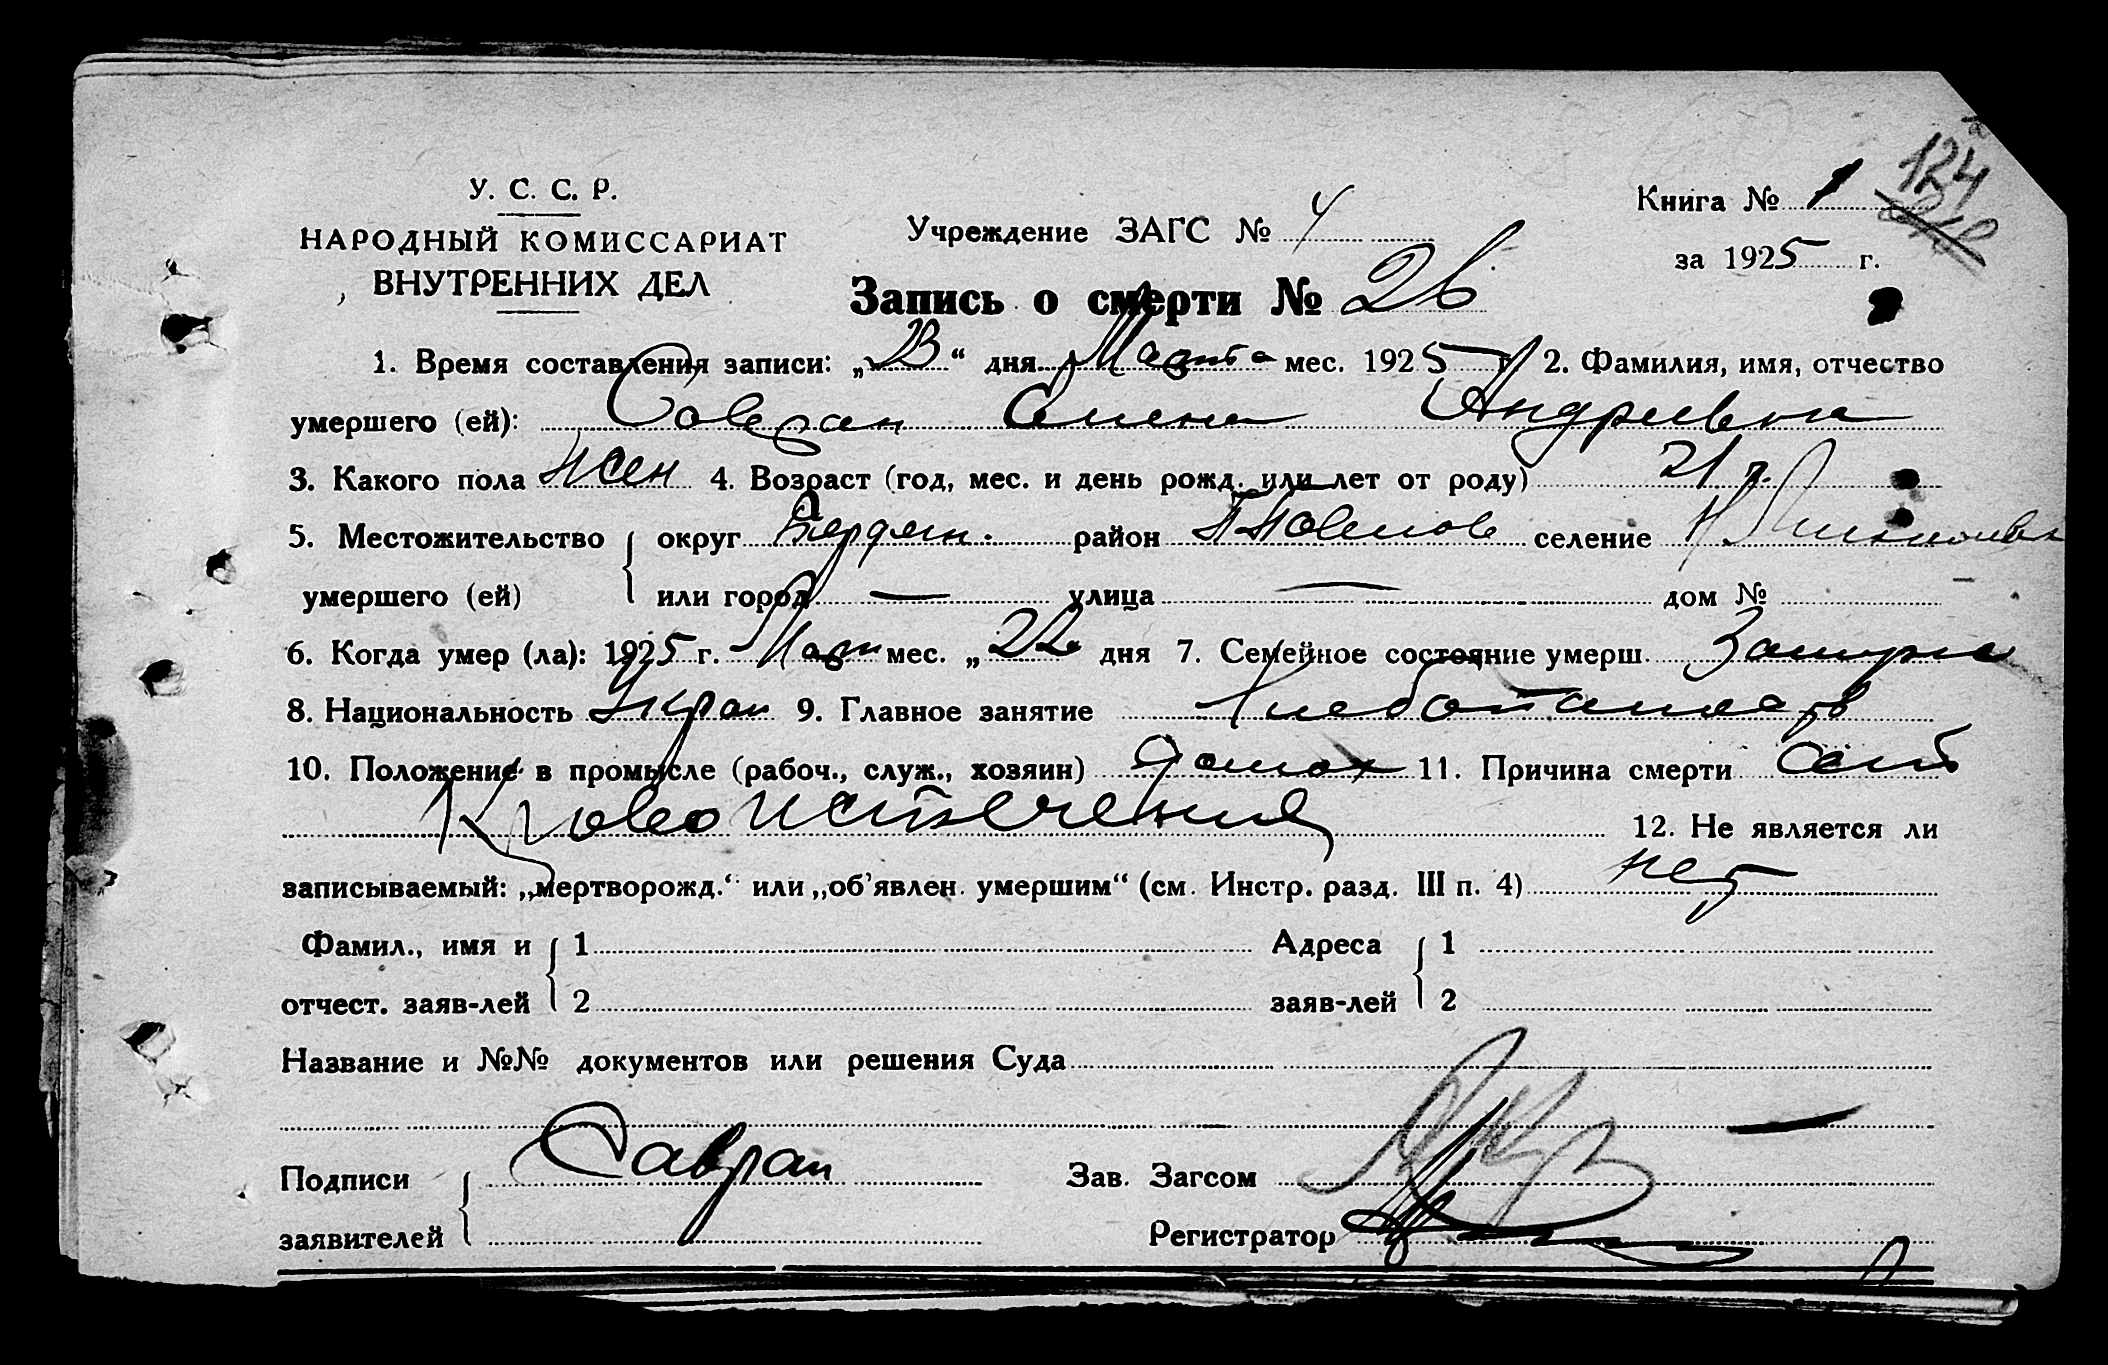 У. С. С. Р.
НАРОДНЫЙ КОМИССАРИАТ
ВНУТРЕННИХ ДЕЛ
Учреждение ЗАГС № 4
Книга № 1
124
за 1925 г.
Запись о смерти № 26
1. Время составления записи: „23“ дня Марта мес. 1925 г. 2. Фамилия, имя, отчество
умершего (ей): Савран Елена Андреевна
3. Какого пола жен 4. Возраст (год, мес. и день рожд. или лет от роду) 21 г.
5. Местожительство округ Бердян. район селение
умершего (ей) или город — улица — дом №
6. Когда умер (ла): 1925 г. Март мес. „22 дня 7. Семейное состояние умерш. Замужн
8. Национальность Украи 9. Главное занятие Хлебопашество
10. Положение в промысле (рабоч., служ., хозяин) домох 11. Причина смерти от
Кровоистечения 12. Не является ли
записываемый: „мертворожд.“ или „об’явлен. умершим“ (см. Инстр. разд. III п. 4) нет
Фамил., имя и 1 Адреса 1
отчест. заяв-лей 2 заяв-лей 2
Название и №№ документов или решения Суда
—
Подписи Савран Зав. Загсом
заявителей Регистратор